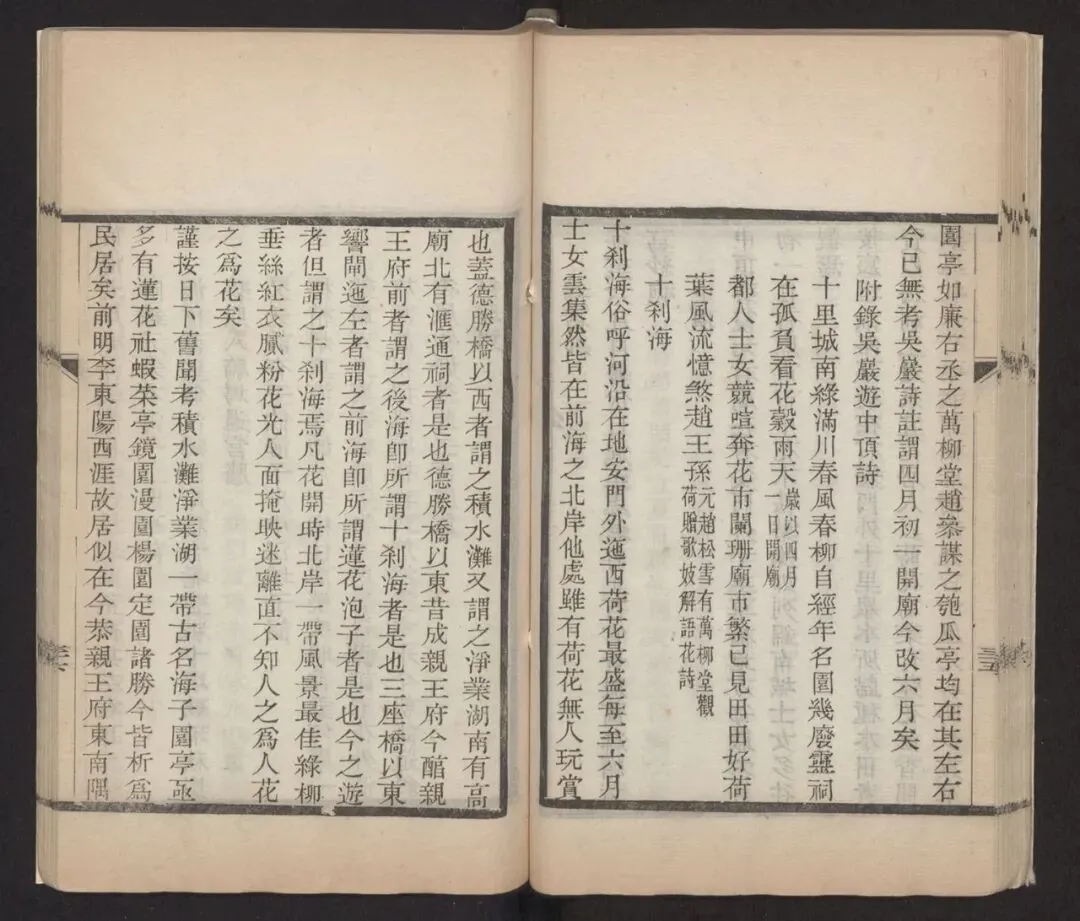 園亭如廉右丞之萬柳堂趙叅謀之匏瓜亭均在其左右
今已無考吳巖詩註謂四月初一開廟今改六月矣
附錄吳巖遊中頂詩
十里城南綠滿川春風春柳自經年名園幾廢靈祠
在孤負看花穀雨天歲以四月一日開廟
都人士女競暄奔花市闌珊廟市繁已見田田好荷
葉風流憶煞趙王孫元趙松雪有萬柳堂觀荷贈歌妓解語花詩
十剎海
十剎海俗呼河沿在地安門外迤西荷花最盛每至六月
士女雲集然皆在前海之北岸他處雖有荷花無人玩賞
也蓋德勝橋以西者謂之積水灘又謂之淨業湖南有高
廟北有滙通祠者是也德勝橋以東昔成親王府今醇親
王府前者謂之後海卽所謂十剎海者是也三座橋以東
響閘迤左者謂之前海卽所謂蓮花泡子者是也今之遊
者但謂之十剎海焉凡花開時北岸一帶風景最佳綠柳
垂絲紅衣膩粉花光人面掩映迷離直不知人之爲人花
之爲花矣
謹按日下舊聞考積水灘淨業湖一帶古名海子園亭亟
多有蓮花社蝦菜亭鏡園漫園楊園定園諸勝今皆析爲
民居矣前明李東陽西涯故居似在今恭親王府東南隅